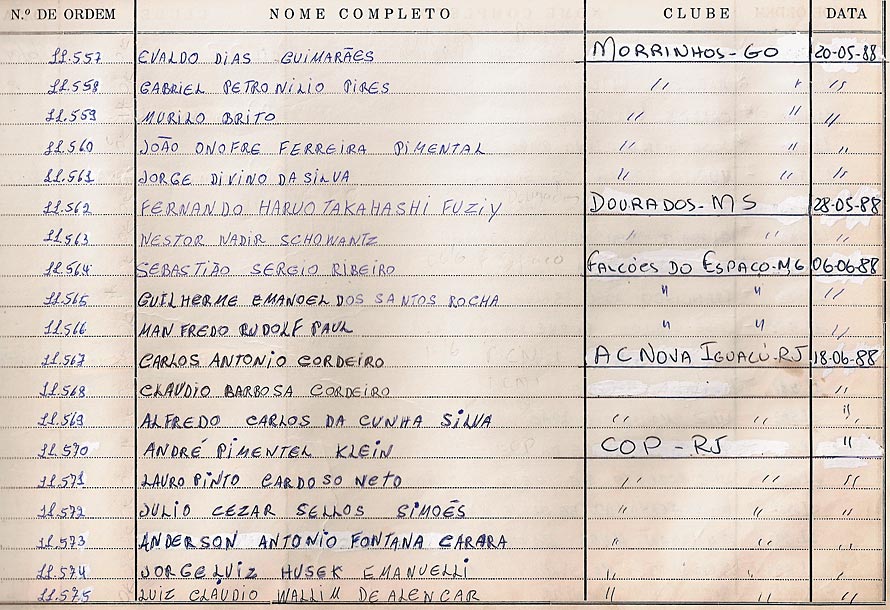 N.º DE ORDEM NOME COMPLETO CLUBE DATA
11.557 EVALDO DIAS GUIMARÃES MORRINHOS-GO 20-05-88
11.558 GABRIEL PETRONILIO PIRES " " "
11.559 MURILO BRITO " " "
11.560 JOÃO ONOFRE FERREIRA PIMENTAL " " "
11.561 JORGE DIVINO DA SILVA " " "
11.562 FERNANDO HARUO TAKAHASHI FUZIY DOURADOS-MS 28-05-88
11.563 NESTOR NADIR SCHOWANTZ " " "
11.564 SEBASTIÃO SERGIO RIBEIRO FALCÕES DO ESPAÇO-MG 06-06-88
11.565 GUILHERME EMANOEL DOS SANTOS ROCHA " " "
11.566 MANFREDO RUDOLF PAUL " " "
11.567 CARLOS ANTONIO CORDEIRO AC NOVA IGUAÇÚ-RJ 18-06-88
11.568 CLAUDIO BARBOSA CORDEIRO "
11.569 ALFREDO CARLOS DA CUNHA SILVA " " "
11.570 ANDRÉ PIMENTEL KLEIN COP-RJ "
11.571 LAURO PINTO CARDOSO NETO " " "
11.572 JULIO CEZAR SELLOS SIMOÉS " " "
11.573 ANDERSON ANTONIO FONTANA CARARA " " "
11.574 JORGE LUIZ HUSEK EMANUELLI " " "
11.575 LUIZ CLAUDIO WALLIM DE ALENCAR " " "